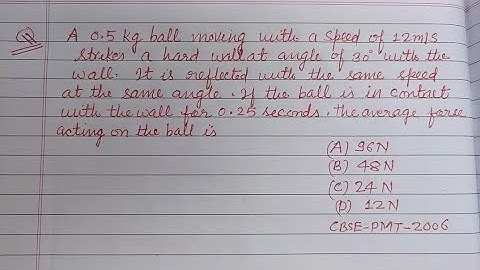 Q A 0.5 kg ball moving with a speed of 12m/s
strikes a hard wall at angle of 30° with the
wall. It is reflected with the same speed
at the same angle. If the ball is in contact
with the wall for 0.25 seconds, the average forse
acting on the ball is
(A) 96N
(B) 48N
(C) 24N
(D) 12N
CBSE-PMT-2006